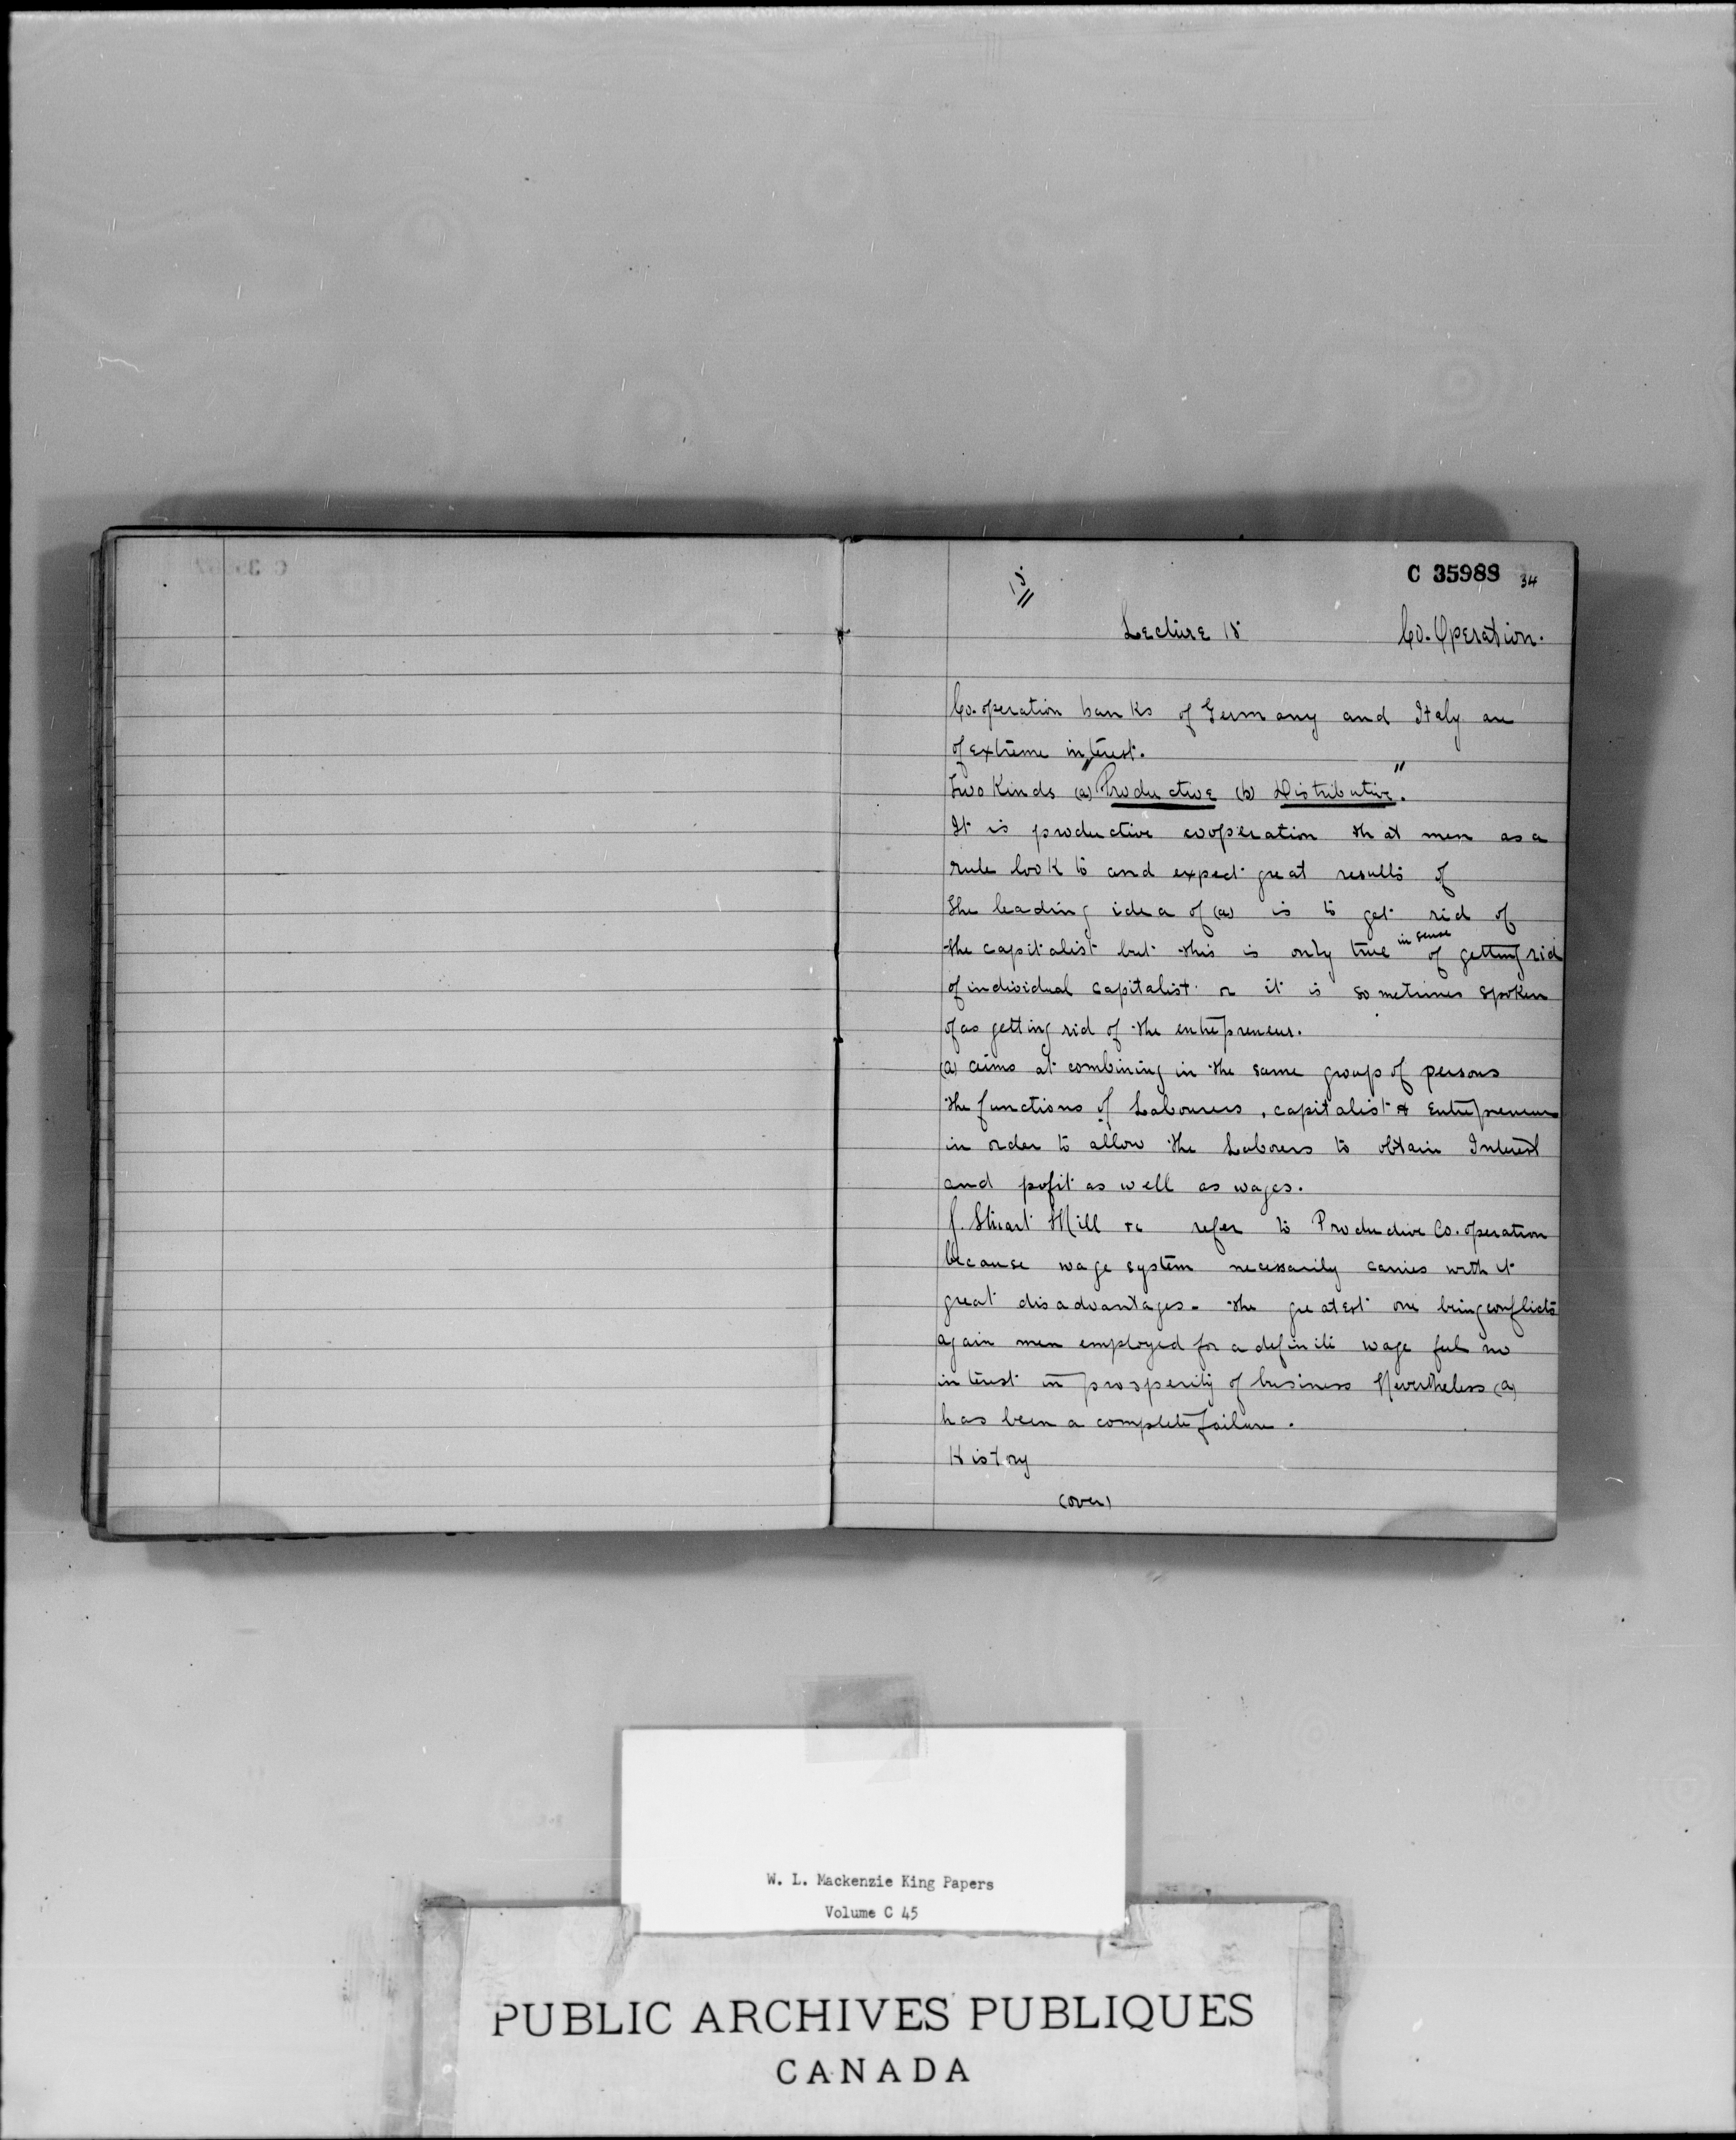 C 35988 34
15
Lecture 15 Co-Operation.
Co-operation banks of Germany and Italy are
of extreme interest.
Two Kinds (a) "Productive (b) Distributive."
It is productive cooperation that men as a
rule look to and expect great results of
The leading idea of (a) is to get rid of
the capitalist but this is only true in sense of getting rid
of individual capitalist or it is sometimes spoken
of as getting rid of the entrepreneur.
(a) aims at combining in the same group of persons
the functions of Labourers, capitalist & Entrepreneur
in order to allow the Laborers to obtain Interest
and pofit as well as wages.
J. Stuart Mill &c refer to Productive Co-operation
because wage system necessarily carries with it
great disadvantages - the greatest one being conflicts
again men employed for a definite wage feel no
interest in prosperity of business Nevertheless (a)
has been a complete failure.
History
(over)
W. L. Mackenzie King Papers
Volume C 45
PUBLIC ARCHIVES PUBLIQUES
CANADA